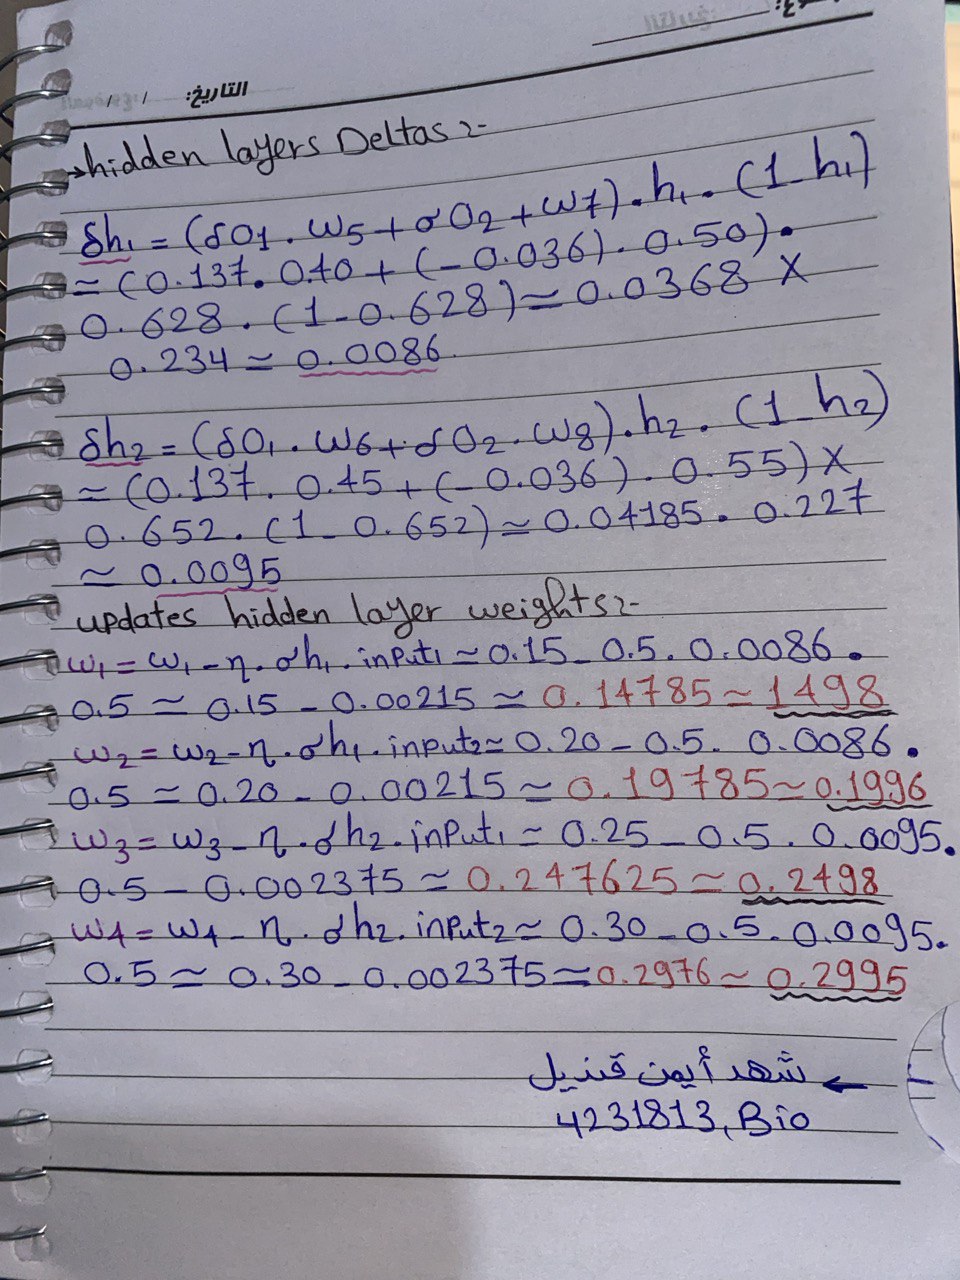 التاريخ: / /
→ hidden layers Deltas :-
δh₁ = (δO₁ . w5 + σO₂ + w7) . h₁ . (1 - h₁)
≈ (0.137 . 0.40 + (-0.036) . 0.50) .
0.628 . (1 - 0.628) ≈ 0.0368 ×
0.234 ≈ 0.0086
δh₂ = (δO₁ . w6 + σO₂ . w8) . h₂ . (1 - h₂)
≈ (0.137 . 0.45 + (-0.036) . 0.55) ×
0.652 . (1 - 0.652) ≈ 0.04185 . 0.227
≈ 0.0095
updates hidden layer weights :-
w₁ = w₁ - η . σh₁ . input₁ ≈ 0.15 - 0.5 . 0.0086 .
0.5 ≈ 0.15 - 0.00215 ≈ 0.14785 ≈ 1498
w₂ = w₂ - η . σh₁ . input₂ ≈ 0.20 - 0.5 . 0.0086 .
0.5 ≈ 0.20 - 0.00215 ≈ 0.19785 ≈ 0.1996
w₃ = w₃ - η . σh₂ . input₁ ≈ 0.25 - 0.5 . 0.0095 .
0.5 - 0.002375 ≈ 0.247625 ≈ 0.2498
w4 = w4 - η . σh₂ . input₂ ≈ 0.30 - 0.5 . 0.0095 .
0.5 ≈ 0.30 - 0.002375 ≈ 0.2976 ≈ 0.2995
← شهد أيمن قنديل
4231813, Bio